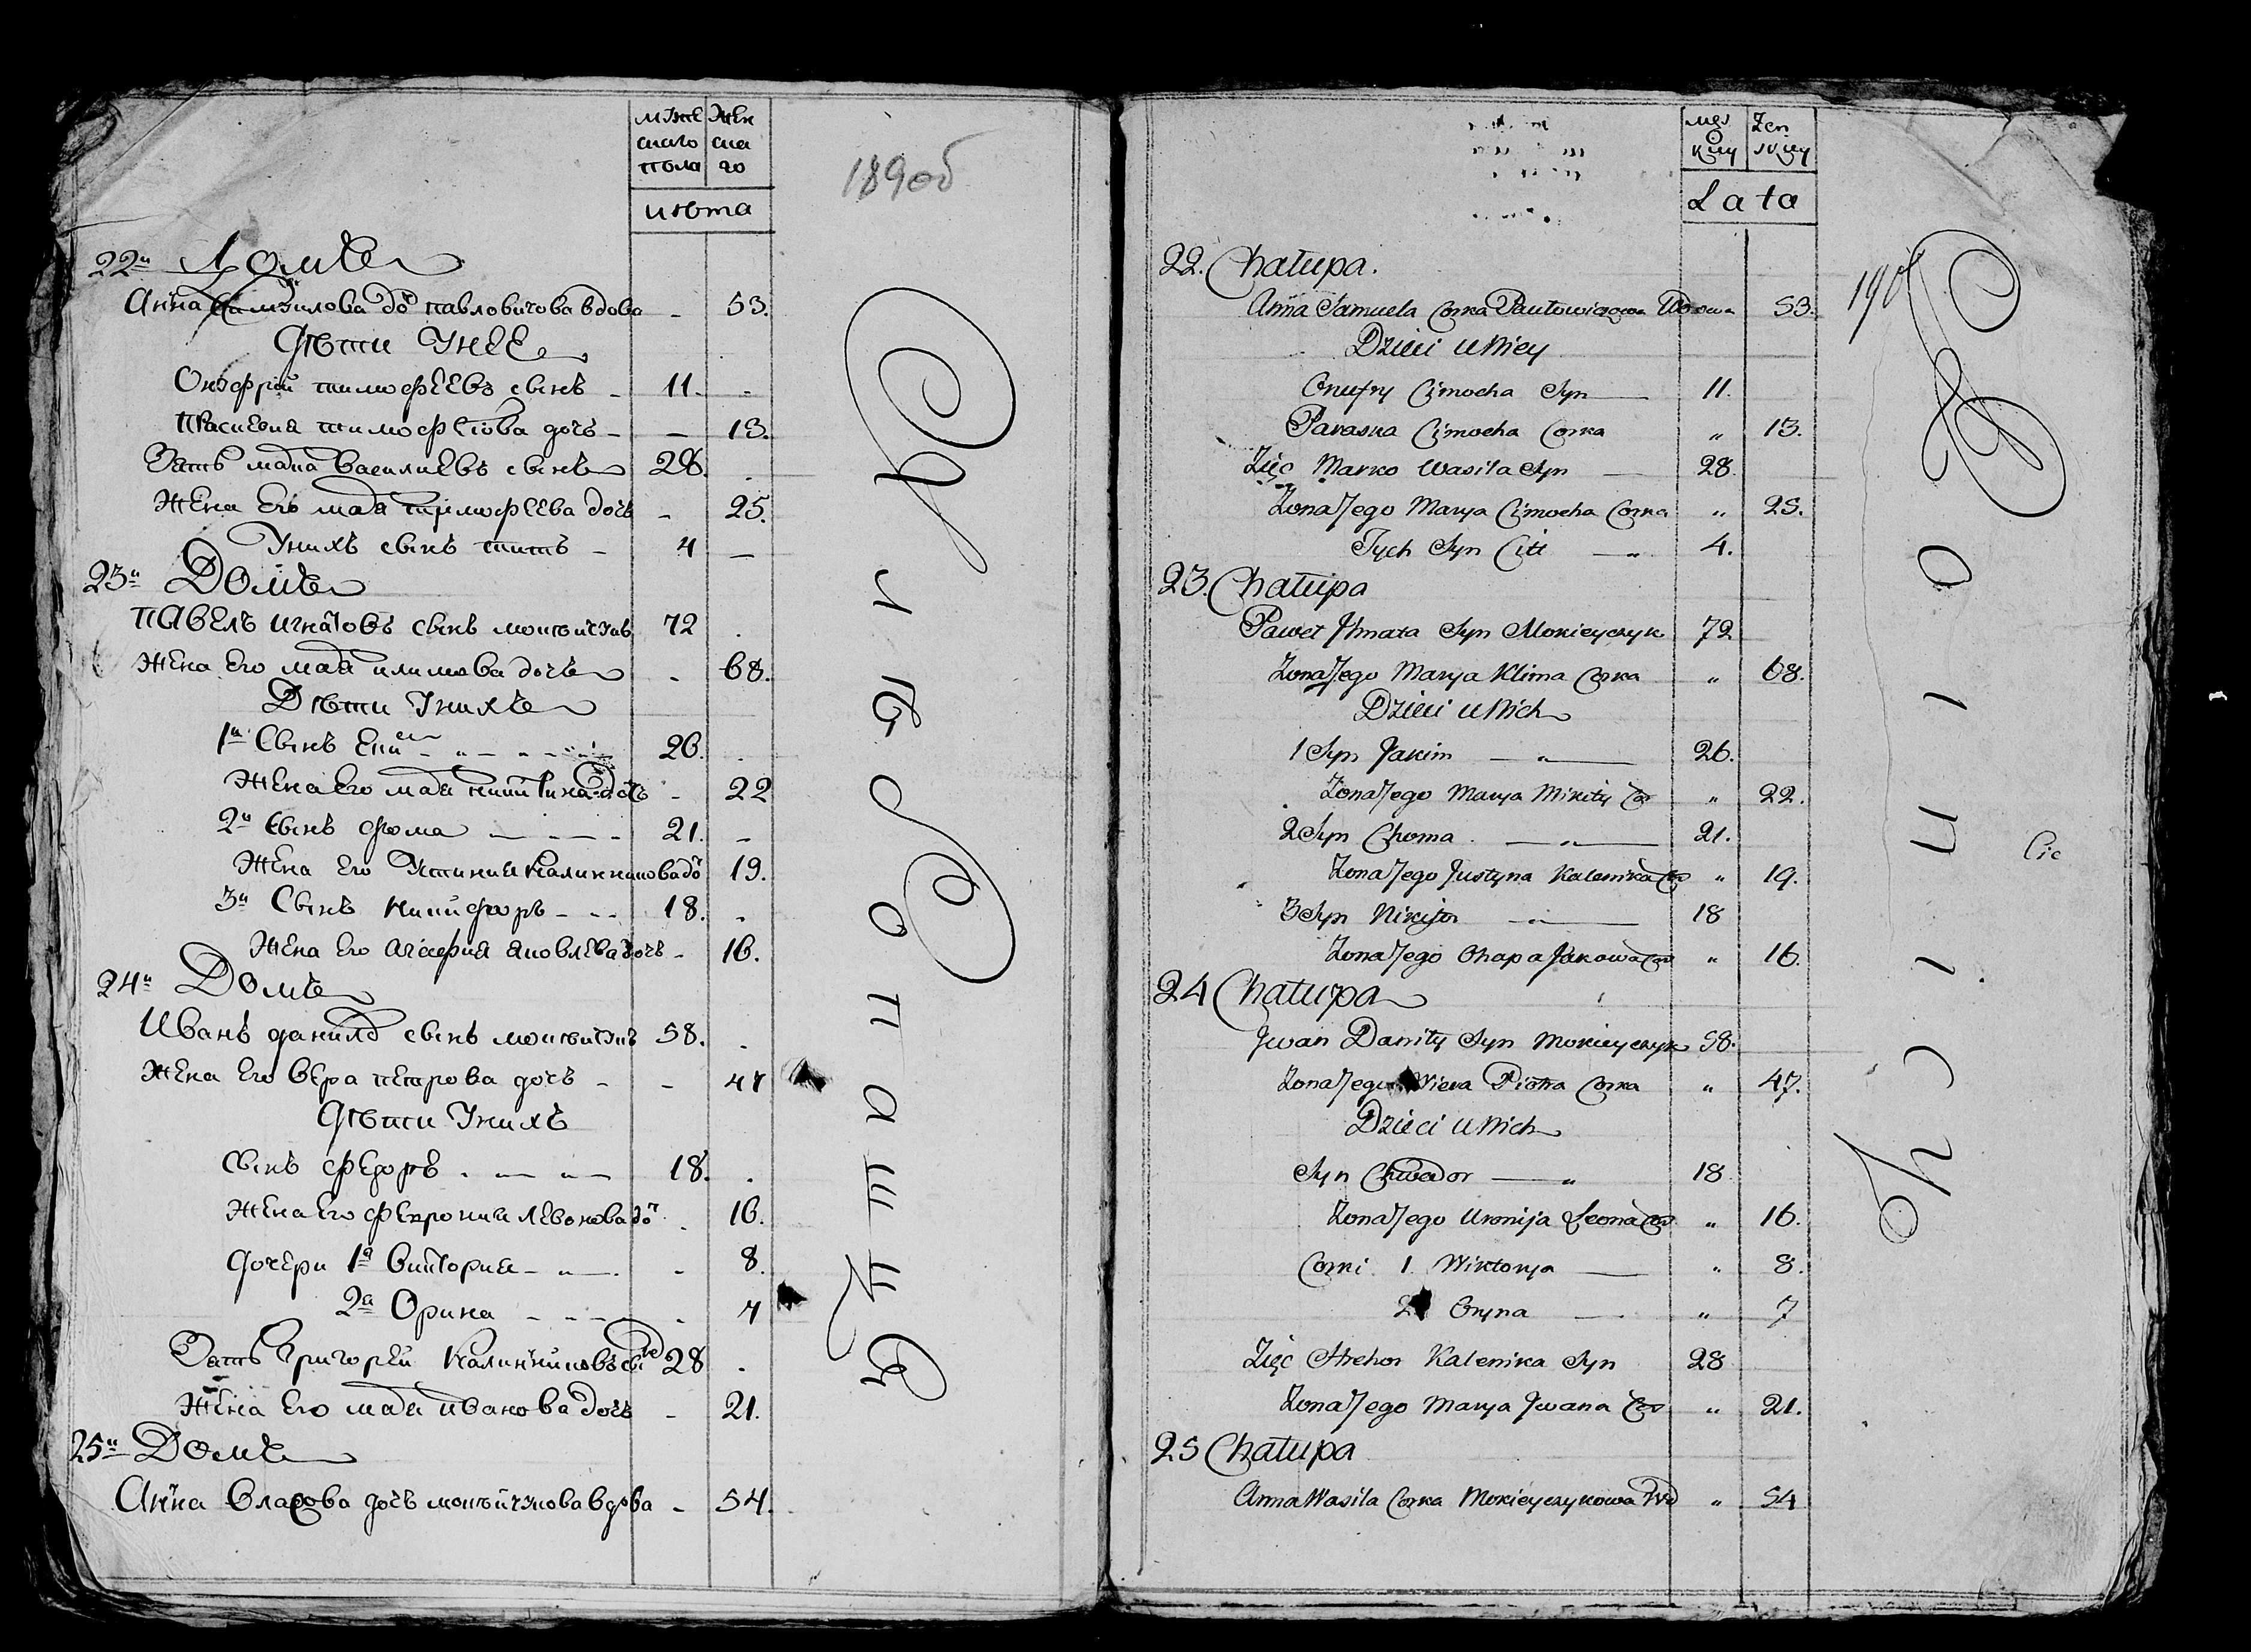 муже жен
скаго ска
пола го
лѣта
189об
22й Домъ
Анна Самуилова до павловичова вдова - 53.
Дѣти У нее
Онуфрій тимофѣевъ сынъ - 11. -
Прасковия тимофѣова дочь - - 13.
Зять марка василиевъ сынъ 28.
Жена Его мария тимофѣева дочь - 25.
У нихъ сынъ титъ - 4 -
23й Домъ
Павелъ игнатовъ сынъ мокѣйчукъ 72
Жена Его мария климова дочь - 68.
Дѣти У нихъ
1й Сынъ 26.
Жена Его мария никитина дочь - 22
2й Сынъ фома - 21. -
Жена Его Устиния калинникова до 19.
3й Сынъ никифоръ - 18.
Жена Его агафия яковлева дочь - 16.
24й Домъ
Иванъ данила сынъ мокѣйчукъ 58.
Жена Его Вера петрова дочь - - 47
Дѣти У нихъ
Сынъ федоръ 18.
Жена Его феврония левонова до 16.
дочери 1я виктория - 8.
2я Орина - 7
Зять Григорей Калинниковъ сы 28
Жена Его мария иванова дочь - 21.
25й Домъ
Анна Власова дочь мокѣйчукова вдова - 54.
męz Zen
kiey skiey
Lata
190
22. Chałupa.
Anna Samuela Corka Pawłowiczowa Wdowa 53.
Dzieci u Niey
Onufry Cimocha Syn 11.
Paraska Cimocha Corka „ 13.
Zięc Marko Wasila Syn 28.
Zona Jego Marya Cimocha Corka „ 25.
Tych Syn Cit „ 4.
23. Chałupa
Paweł Ihnata Syn Mokieyczyk 72
Zona Jego Marya Klima Corka „ 68.
Dzieci u Nich
1 Syn Jakim „ 26.
Zona Jego Marya Mikity Cor „ 22.
2 Syn Choma „ 21.
Zona Jego Justyna Kalenika Cor „ 19.
3 Syn Nikifor „ 18
Zona Jego Ohapa Jakowa Cor „ 16.
24 Chałupa
Jwan Daniły Syn Mokieyczyk 58.
Zona Jego Wiera Piotra Corka „ 47.
Dzieci u Nich
Syn Chwiedor „ 18
Zona Jego Uronija Leona Cor „ 16.
Corki 1. Wiktorya „ 8.
2 Oryna „ 7
Zięc Hrehor Kalenika Syn 28
Zona Jego Marya Jwana Cor „ 21.
25 Chałupa
Anna Wasila Corka Mokieyczykowa Wd „ 54